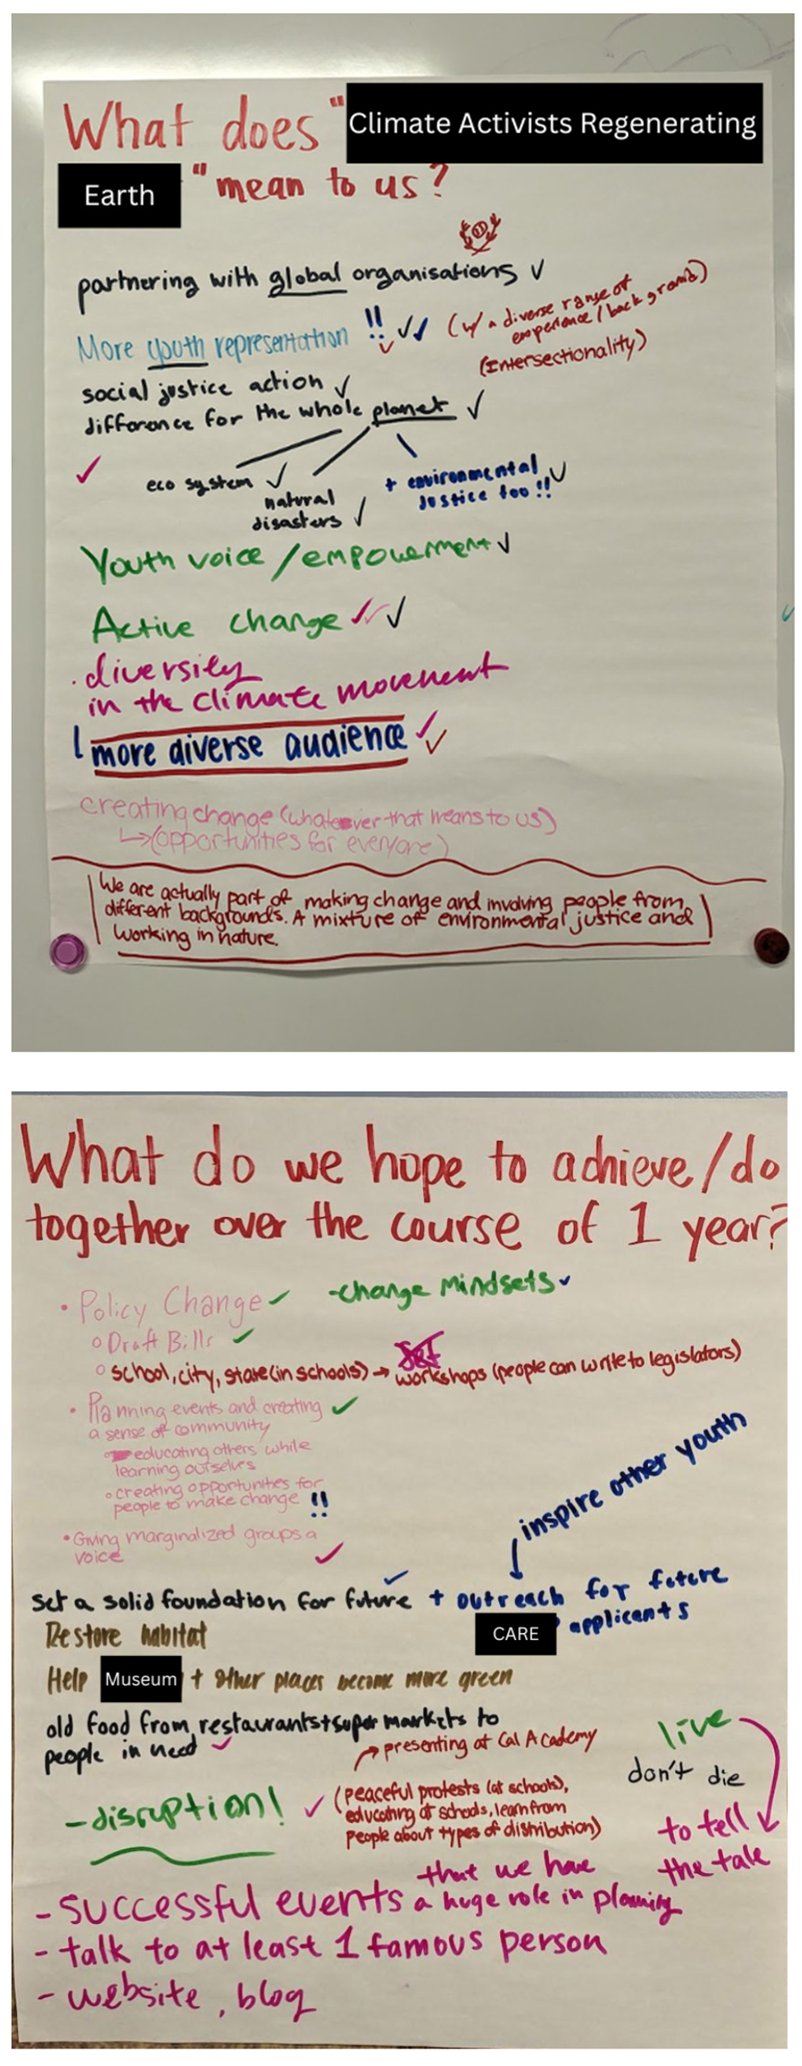 What does "Climate Activists Regenerating
Earth " mean to us?
partnering with global organisations ✓
More youth representation !! ✓✓✓ (w/ a diverse range of
experience / background)
(Intersectionality)
social justice action ✓
difference for the whole planet ✓
✓
eco system ✓
natural
disasters ✓
+ environmental ✓
Justice too!!
Youth voice / empowerment ✓
Active change ✓✓✓
. diversity
in the climate movement
more diverse audience ✓✓
creating change (whatever that means to us)
↳ (opportunities for everyone)
We are actually part of making change and involving people from
different backgrounds. A mixture of environmental justice and
working in nature.
What do we hope to achieve/do
together over the course of 1 year?
• Policy Change ✓ -change mindsets ✓
○ Draft Bills ✓
○ school, city, state (in schools) → workshops (people can write to legislators)
• Planning events and creating ✓
a sense of community
○ educating others while
learning ourselves
○ creating opportunities for
people to make change !!
• Giving marginalized groups a
voice ✓
inspire other youth
set a solid foundation for future ✓ + outreach for future
CARE applicants
Restore habitat
Help Museum + other places become more green
old food from restaurants + super markets to
people in need ✓
→ presenting at Cal Academy
-disruption! ✓ (peaceful protests (at schools),
educating at schools, learn from
people about types of distribution)
live
don't die
to tell
the tale
- successful events that we have
a huge role in planning
- talk to at least 1 famous person
- website, blog